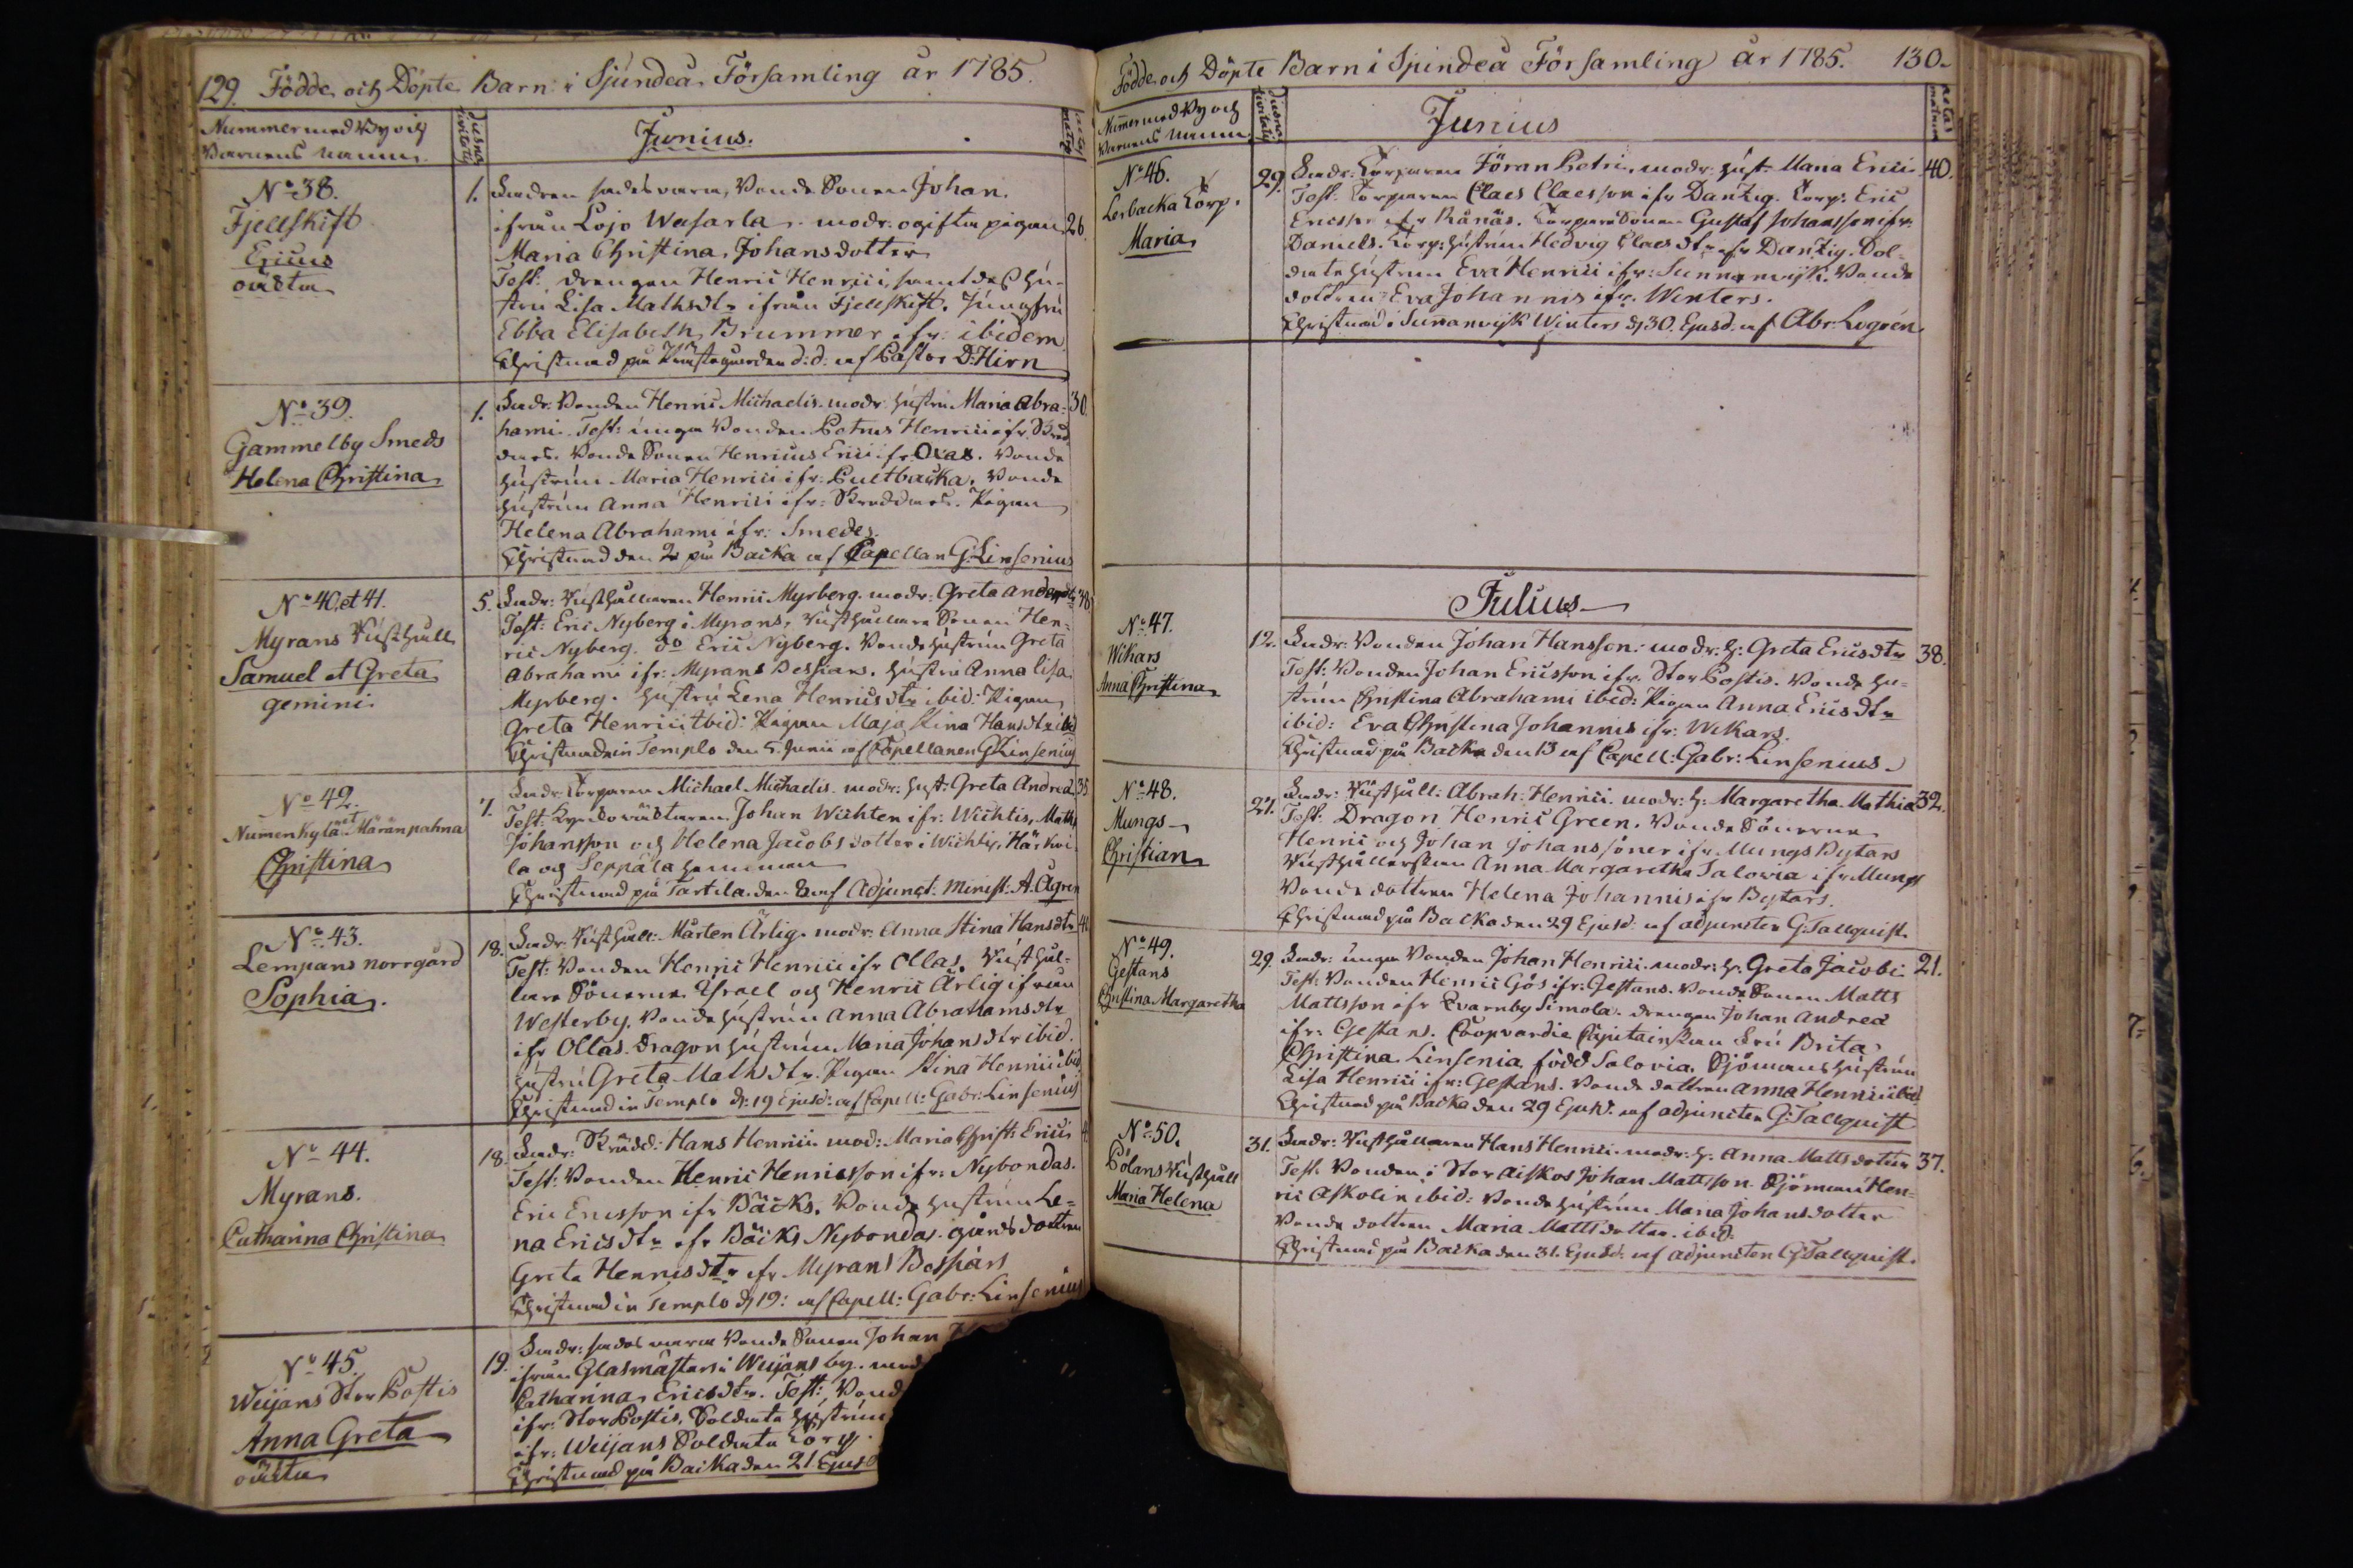 129. Födde och Döpte Barn i Sjundeå Församling år 1785.
Nummer med By och
Barnens namn.
Junius.
No 38.
Fjellskift
Ericus
oäckta
1. Fadren sades vara, Bonde Sonen Johan.
ifrån Lojo Wasarla. modr: ogifta pigan 26.
Maria Christina Johansdotter
Test: drengen Henric Henrici, samt des hu-
stru Lisa Mathsdtr ifrån Fjellskift. Jungfru
Ebba Elisabeth Brummer ifr: ibidem
Christnad på Prästegården d: d: af Pastor D: Hirn
No 39.
Gammelby Smeds
Helena Christina
1. Fadr: Bonden Henric Michaelis. modr: hustru Maria Abra- 30.
hami. Test: unga Bonden Petrus Henrici ifr.
Bonde Sonen Henricus Erici ifr Oxas. Bonde
hustrun Maria Henrici ifr: Pultbacka. Bonde
hustrun Anna Henrici ifr: Skreddars. Pigan
Helena Abrahami ifr: Smedes.
Christnad den 2 på Backa af Capellan G: Linsenius
No 40. et 41.
Myrans Rusthåll
Samuel et Greta
gemini.
5. Fadr: Rusthållaren Henric Myrberg. modr: Greta 38.
Test: Eric Nyberg i Myrans, Rusthållare Sonen Hen-
ric Nyberg. do Eric Nyberg. Bonde hustrun Greta
Abrahami ifr: Myrans Bessiars. hustru Anna Lisa
Myrberg. hustru Lena Henricsdtr ibid: Pigan
Greta Henrici ibid: Pigan Maja Stina Hansdtr ibid
Christnade in Templo den 5. Junii af Capellanen G Linsenius
No 42.
Numenkylä et Märänpahna
Christina
7. Fadr: Torparen Michael Michaelis. modr: hust: Greta Andreæ 35
Test: Johan Wichten ifr: Wichtis, Matts
Johansson och Helena Jacobsdotter i Wichtis, Härkoi-
la och Seppälä hemman
Christnad på Tartila den 8 af Adjunct: Minist: A. Agren
No 43.
Lempans norrgård
Sophia.
18. Fadr: Rusthåll: Mårten Ärlig. modr: Anna Stina Hansdtr 41
Test: Bonden Henric Henrici ifr Ollas. Rusthål-
lare Sönerne Israel och Henric Ärlig ifrån
Westerby. Bonde hustrun Anna Abrahamsdtr
ifr Ollas. Dragon hustrun Maria Johansdtr ibid.
hustru Greta Mathsdtr. Pigan Stina Henrici ibid
Christnad in Templo d: 19 Ejusd: af Capell: Gabr: Linsenius
No 44.
Myrans.
Catharina Christina
18. Fadr: Skrädd: Hans Henrici. mod: Maria Christ: Erici
Test: Bonden Henric Henricsson ifr: Nybondas.
Eric Ericsson ifr Bäcks. Bonde hustrun Le-
na Ericsdtr ifr Bäcks Nybondas. gårds dottren
Greta Henricsdtr ifr Myrans Bessiars
Christnad in Templo d: 19: af Capell: Gabr: Linsenius
No 45.
Weijans Stor Postis
Anna Greta
oäckta
19. Fadr: sades vara Bonde Sonen Johan
ifrån Glasmästars i Weijans by. mod
Catharina Ericsdtr. Test: Bond
ifr: Stor Postis, Soldate hustrun
ifr: Weijans Soldate Torp.
Christnad på Backa den 21 Ejusd
Födde och Döpte Barn i Sjundeå Församling år 1785. 130.
Nummer med By och
Barnens namn.
Junius
No 46.
Lerbacka Torp.
Maria
29. Fadr: Torparen Jöran Petri, modr: hust: Maria Erici 40.
Test: Torparen Claes Claesson ifr Dantzig. Torp: Eric
Ericsson ifr Rånäs. Torpare Sonen Gustaf Johansson ifr:
Daniels. Torp: hustrun Hedvig Claesdtr ifr Dantzig. Sol-
date hustrun Eva Henrici ifr: Sunnanvijk. Bonde
dottren Eva Johannis ifr. Winters.
Christnad i Sunanvijk Winters d: 30. Ejusd. af Abr: Logrén.
Julius
No 47.
Wikars
Anna Christina
12. Fadr: Bonden Johan Hansson: modr: h: Greta Ericsdtr 38.
Test: Bonden Johan Ericsson ifr. Stor Postis. Bonde hu-
strun Christina Abrahami ibid: Pigan Anna Ericsdtr
ibid: Eva Christina Johannis ifr: Wikars.
Christnad på Backa den 13 af Capell: Gabr: Linsenius.
No 48.
Mungs
Christian
27. Fadr: Rusthåll: Abrah: Henrici. modr: h: Margaretha Mathiæ 32.
Test: Dragon Henric Green. Bonde Sönerne
Henric och Johan Johanssöner ifr Mungs Bytars
Rusthållerskan Anna Margaretha Salovia ifr Mungs
Bonde dottren Helena Johannis ifr Bytars.
Christnad på Backa den 29 Ejusd: af adjuncten G: Tallquist.
No 49.
Gestans
Christina Margaretha
29. Fadr: unga Bonden Johan Henrici. modr: h: Greta Jacobi 21.
Test: Bonden Henric Gös ifr: Gestans. Bonde Sonen Matts
Mattsson ifr Qvarnby Simola. drengen Johan Andreæ
ifr: Gestans. Coopvardie Capitainskan Fru Brita
Christina Linsenia, född Salovia. Sjömans hustrun
Lisa Henrici ifr: Gestans. Bonde dottren Anna Henrici ibid.
Christnad på Backa den 29 Ejusd: af adjuncten G: Tallquist
No 50.
Pölans Rusthåll
Maria Helena
31. Fadr: Rusthållaren Hans Henrici. modr: h: Anna Matts dotter 37.
Test. Bonden i Stor Aiskos Johan Mattsson. Sjöman Hen-
ric Askolin ibid: Bonde hustrun Maria Johansdotter
Bonde dottren Maria Mattsdotter. ibid:
Christnad på Backa den 31. Ejusd: af adjuncten G: Tallquist.